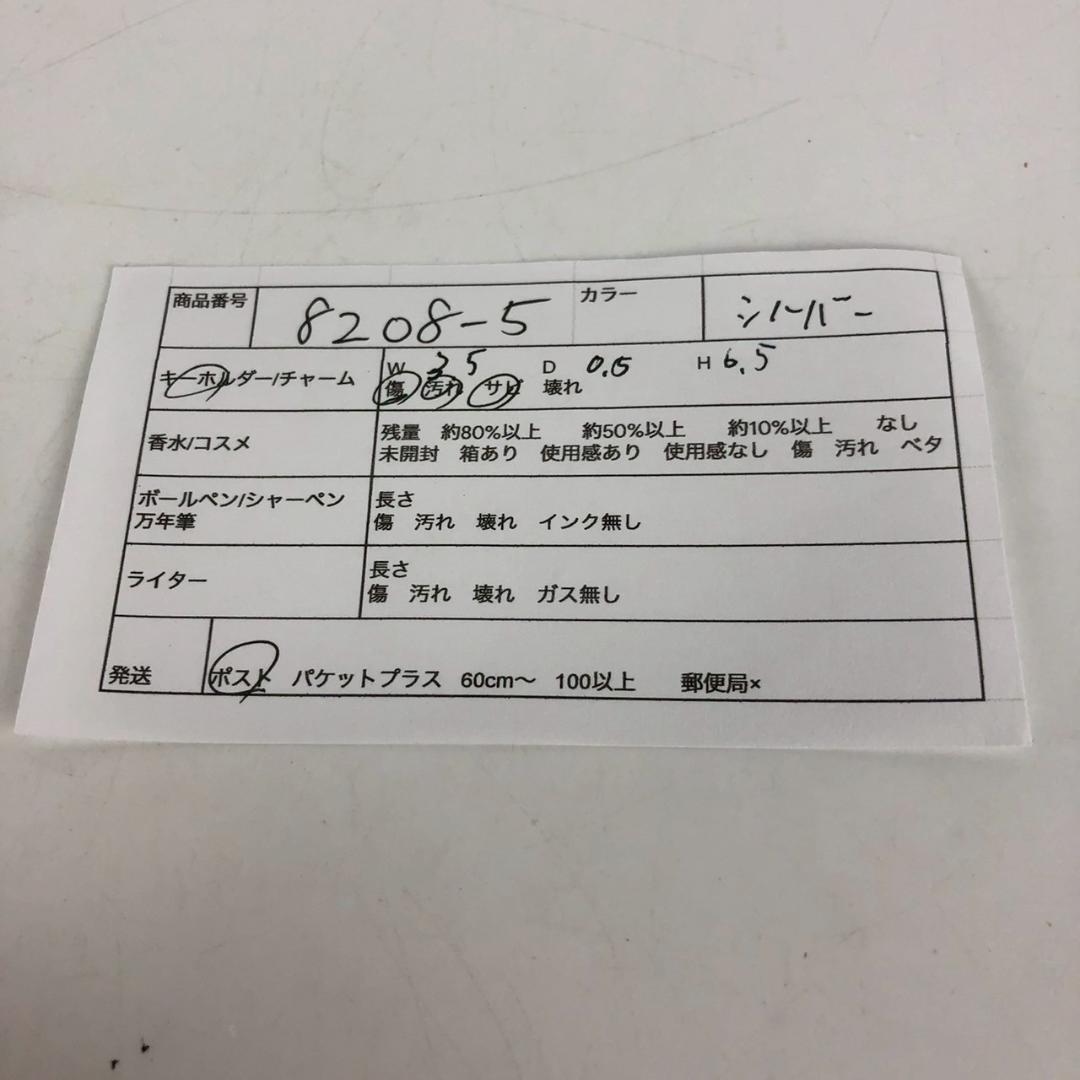 商品番号 8208-5 カラー シルバー
キーホルダー/チャーム W 3 5 D 0.5 H 6.5
傷 汚れ サビ 壊れ
香水/コスメ 残量 約80%以上 約50%以上 約10%以上 なし
未開封 箱あり 使用感あり 使用感なし 傷 汚れ ベタ
ボールペン/シャーペン 長さ
万年筆 傷 汚れ 壊れ インク無し
ライター 長さ
傷 汚れ 壊れ ガス無し
発送 ポスト パケットプラス 60cm〜 100以上 郵便局×